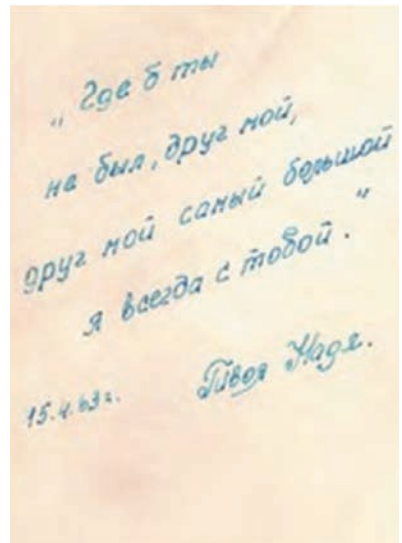 „Где б ты
не был, друг мой,
друг мой самый большой
я всегда с тобой."
15.4.63г. Твоя Надя.